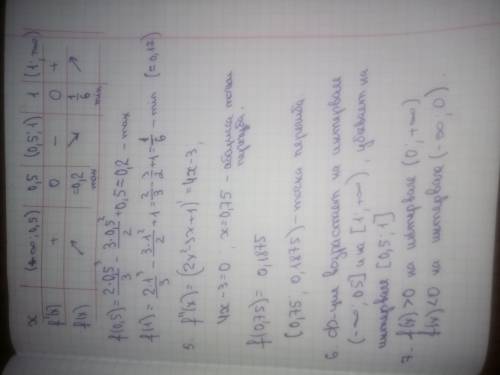 x | (-∞; 0,5) | 0,5 | (0,5; 1) | 1 | (1; ∞)
f'(x) | + | 0 | - | 0 | +
f(x) | ↗ | ≈0,2 max | ↘ | 1/6 min | ↗
f(0,5) = 2·0,5³/3 - 3·0,5²/2 + 0,5 ≈ 0,2 - max
f(1) = 2·1³/3 - 3·1²/2 + 1 = 2/3 - 3/2 + 1 = 1/6 - min (≈ 0,17)
5. f''(x) = (2x²-3x+1)' = 4x-3,
4x-3=0, x=0,75 - абсцисса точки
перегиба.
f(0,75) = 0,1875
(0,75; 0,1875) - точка перегиба
6 Ф-ция возрастает на интервале
(-∞; 0,5] и на [1; +∞), убывает на
интервале [0,5; 1]
7. f(x)>0 на интервале (0; +∞)
f(x)<0 на интервале (-∞; 0).